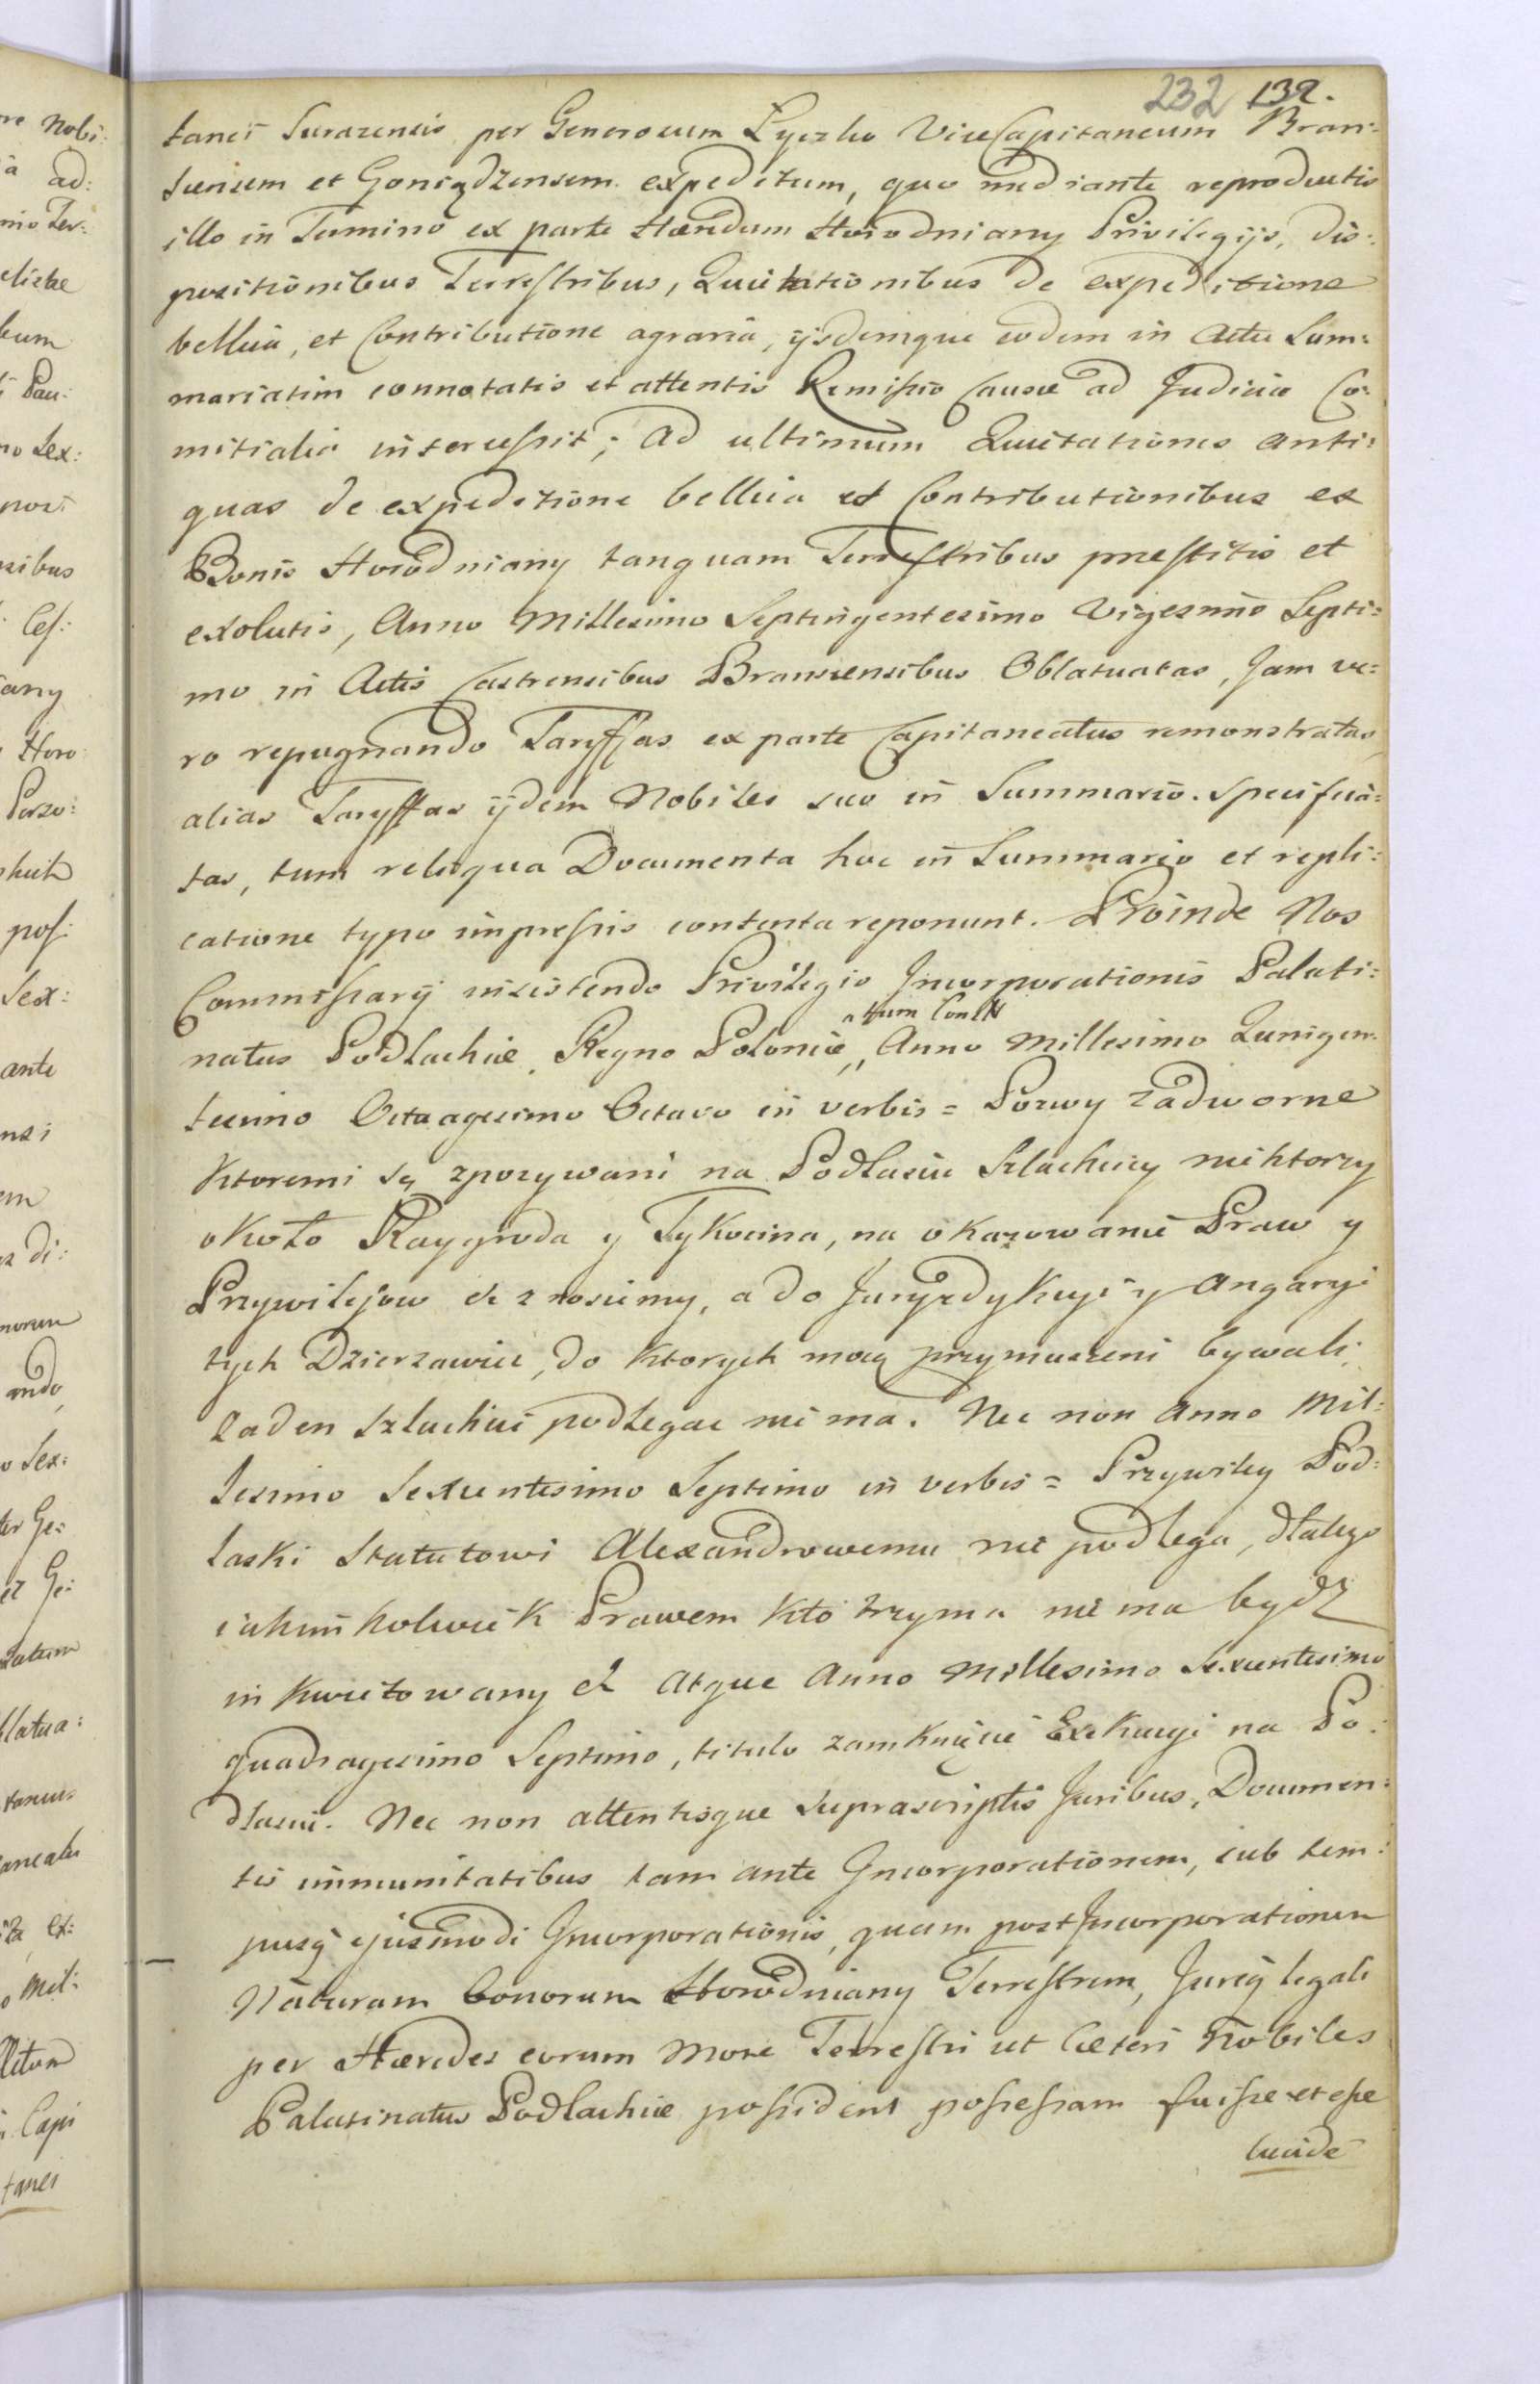 232 132.
tanei Surazensis per Generosum Łyczko ViceCapitaneum Bran=
scensem et Goniądzensem expeditum, quo mediante reproductis
illo in Termino ex parte Hæredum Horodniany Privilegijs, dis=
positionibus Terrestribus, Quietationibus de expeditione
bellica, et Contributione agraria, ijsdemque eodem in Actu Sum=
mariatim connotatis et attentis Remissio Causæ ad Judicia Co=
mitialia intercessit; Ad ultimum Quietationes anti=
quas de expeditione bellica et Contributionibus ex
Bonis Horodniany tanquam Terrestribus præstitis et
exolutis, Anno Millesimo Septingentesimo Vigesimo Septi=
mo in Actis Castrensibus Branscensibus Oblatuatas, Jam ve=
ro repugnando Taryffas ex parte Capitaneatus remonstratas,
alias Taryffas ijdem Nobiles suo in Summario specifica=
tas, tum reliqua Documenta hoc in Summario et repli=
catione typo impressis contenta reponunt. Proinde Nos
Commissarij insistendo Privilegio Incorporationis Palati=
natus Podlachiæ Regno Poloniæ,, Anno Millesimo Quingen=
tesimo Octuagesimo Octavo in verbis = Pozwy zadworne
ktoremi są zpozywani na Podlasiu Szlachcicy niektorzy
około Raygroda y Tykocina, na okazowanie Praw y
Przywilejow &c znosiemy, a do Juryzdykcyi y Angaryi
tych Dzierzawiec, do ktorych mocą przymuszeni bywali,
żaden Szlachcic podlegac nie ma. Nec non Anno Mil=
lesimo Sexcentesimo Septimo in verbis = Przywiley Pod=
laski Statutowi Alexandrowemu nie podlega, dlatego
iakimkolwiek Prawem kto trzyma nie ma bydz
inkwietowany &c Atque Anno Millesimo Sexcentesimo
quadragesimo Septimo, titulo zamknięcie Exekucyi na Po=
dlasiu. Nec non attentisque suprascriptis Juribus, Documen=
tis immunitatibus tam ante Incorporationem, sub tem=
pusq ejusmodi Incorporationis, quam post Incorporationem
Naturam bonorum Horodniany Terrestrem, Jureq legali
per Hæredes eorum More Terrestri ut Cæteri Nobiles
Palatinatus Podlachiæ possident possessam fuisse et esse
lucide